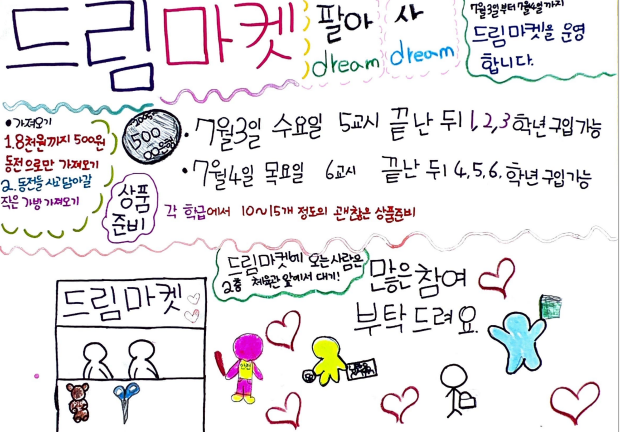 드림마켓
팔아 dream
사 dream
7월3일부터 7월4일까지
드림마켓을 운영
합니다.
• 가져오기
1. 8천원까지 500원
동전으로만 가져오기
2. 동전을 사고 담아갈
작은 가방 가져오기
500
• 7월3일 수요일 5교시 끝난 뒤 1,2,3학년 구입 가능
• 7월4일 목요일 6교시 끝난 뒤 4.5.6.학년 구입가능
상품
준비
각 학급에서 10~15개 정도의 괜찮은 상품준비
드림마켓에 오는사람은
2층 체육관 앞에서 대기!
많은 참여
부탁 드려요
드림마켓